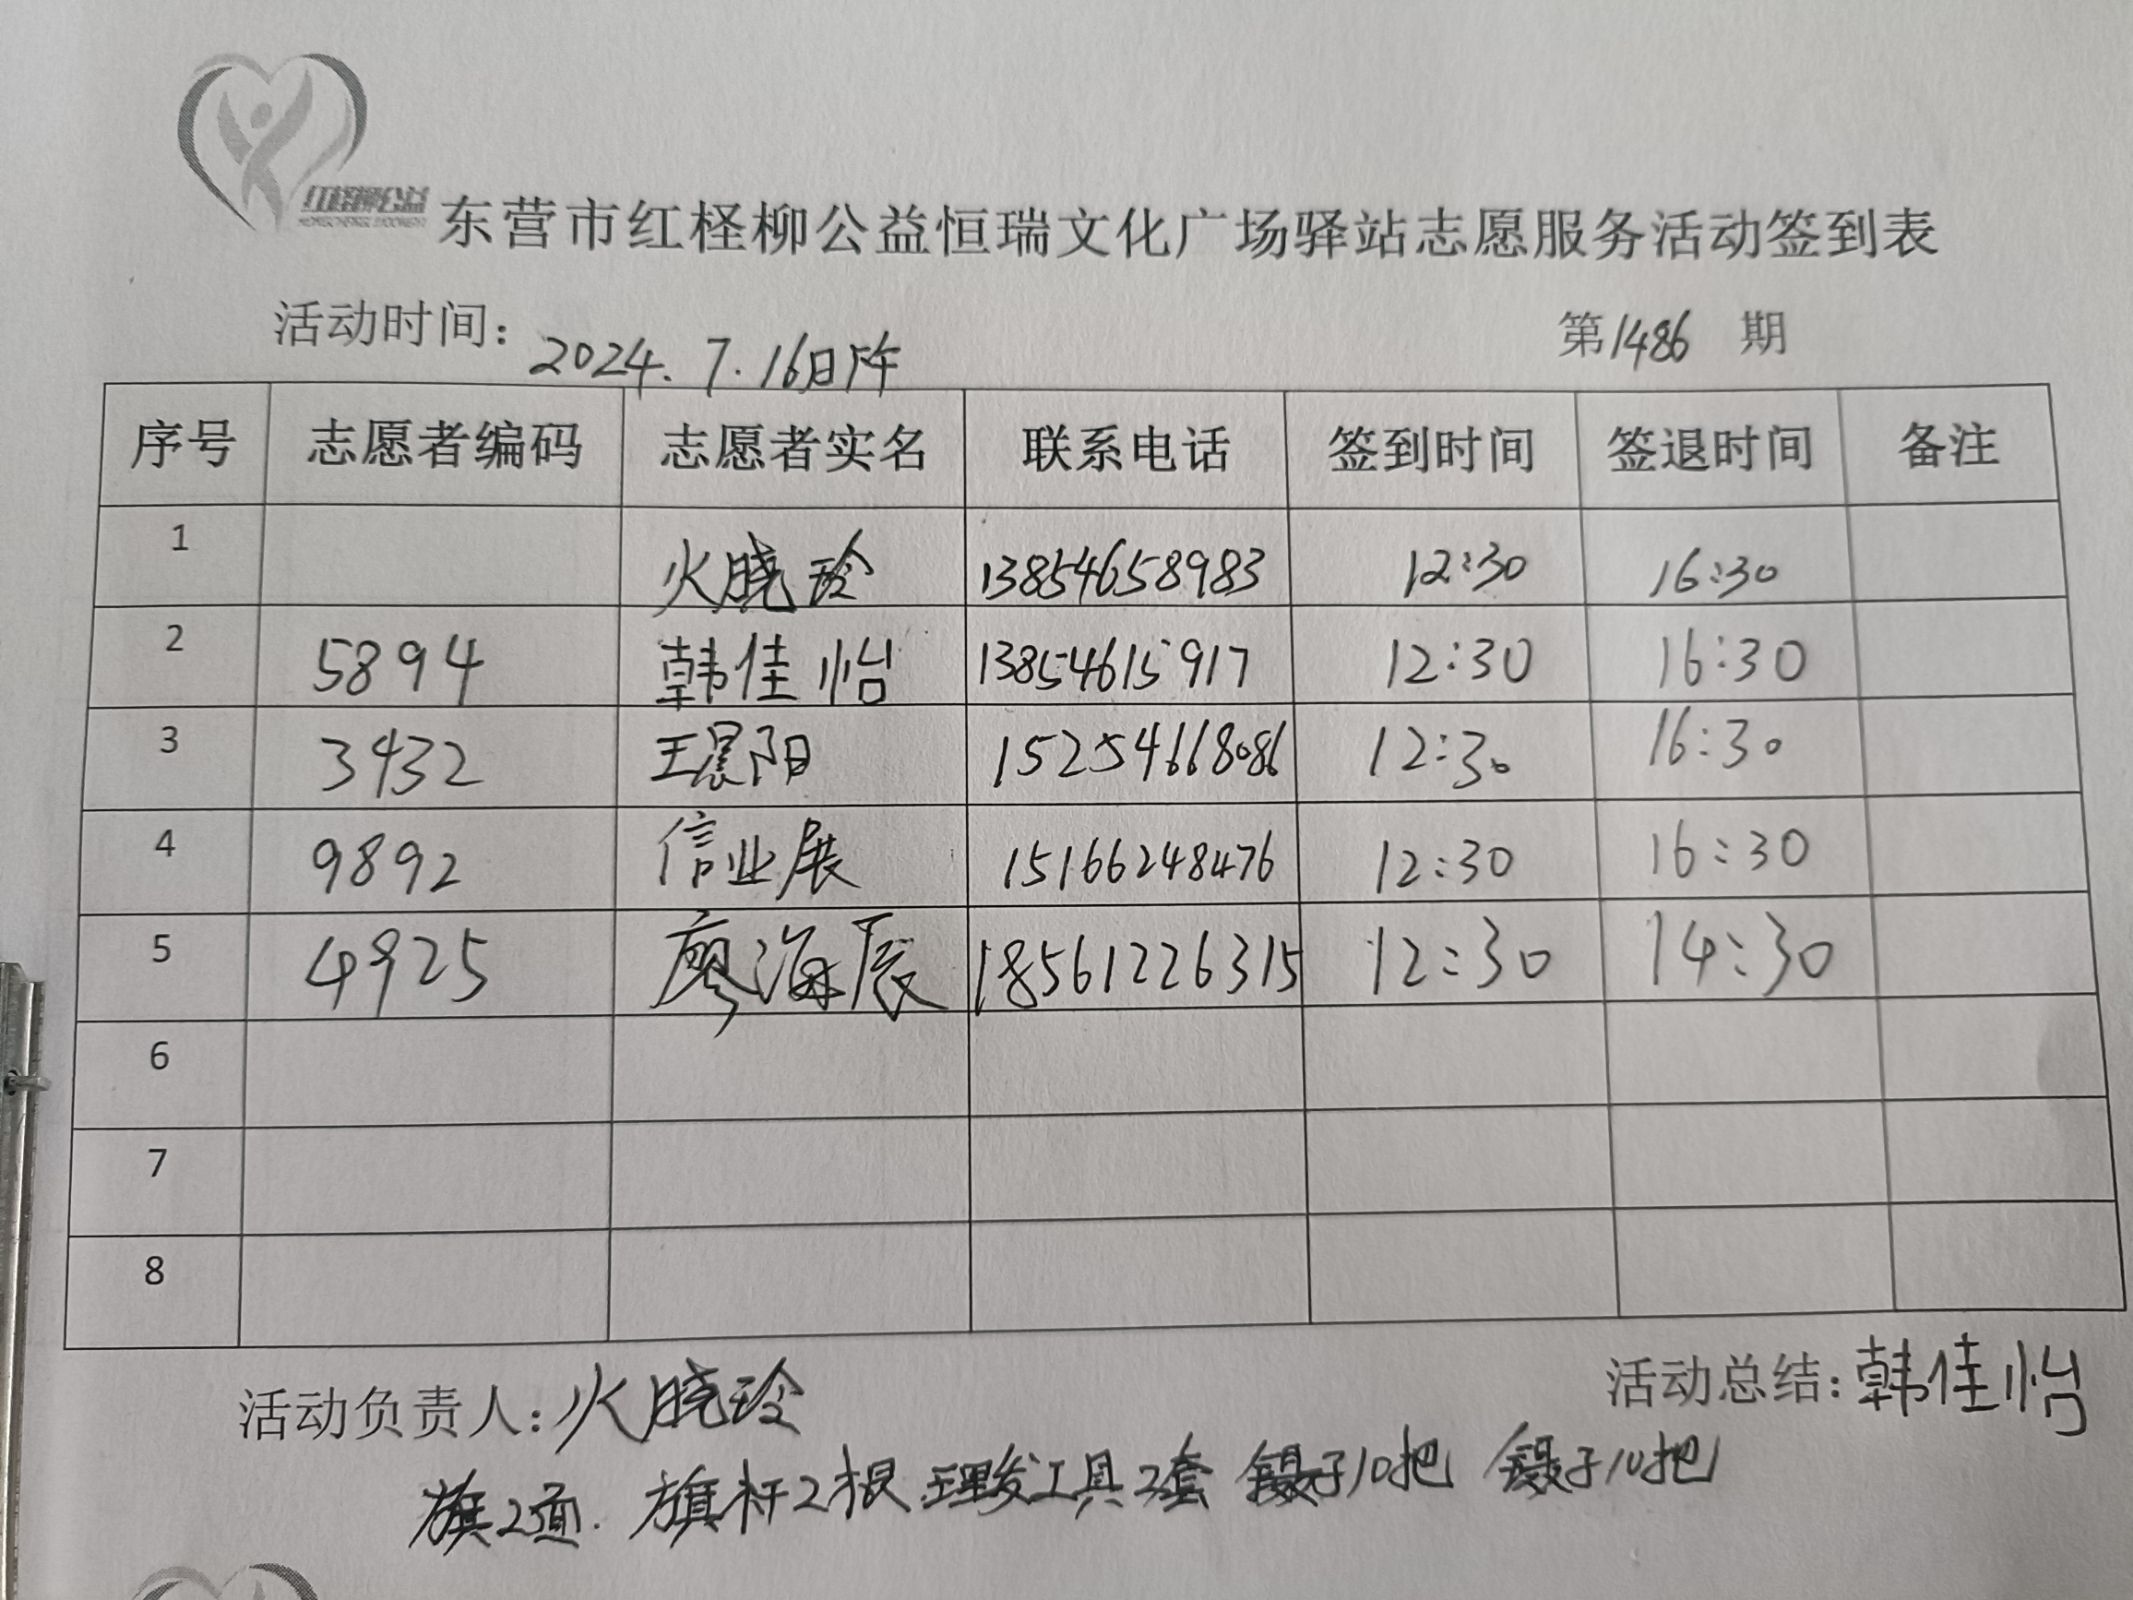 红柽柳公益
东营市红柽柳公益恒瑞文化广场驿站志愿服务活动签到表
活动时间：2024.7.16日下午 第1486期
序号 志愿者编码 志愿者实名 联系电话 签到时间 签退时间 备注
1 火晓玲 13854658983 12:30 16:30
2 5894 韩佳怡 13854615917 12:30 16:30
3 3432 王晨阳 15254668086 12:30 16:30
4 9892 信业展 15166248476 12:30 16:30
5 4925 廖海辰 18561226315 12:30 14:30
6
7
8
活动负责人：火晓玲 活动总结：韩佳怡
旗2面. 旗杆2根 理发工具2套 镊子10把 镊子10把